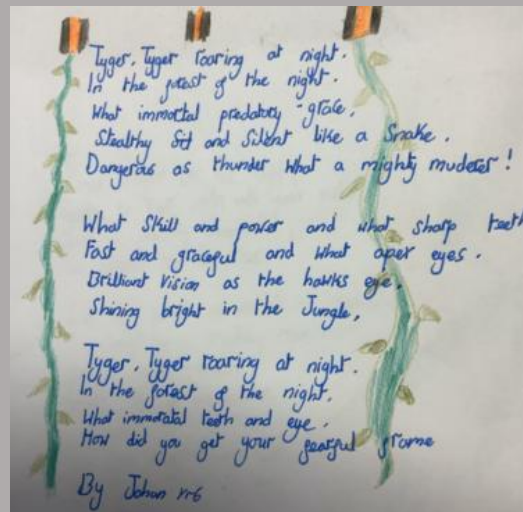 Tyger, Tyger roaring at night.
In the forest of the night.
What immortal predatory grace,
Stealthy and Silent like a Snake.
Dangerous as thunder what a mighty muderer!
What Skill and power and what sharp teeth
Fast and graceful and what eyes.
Brilliant Vision as the hawks eye,
Shining bright in the Jungle,
Tyger, Tyger roaring at night.
In the forest of the night.
What immoratal teeth and eye.
How did you get your fearful frame
By Johan Yr6